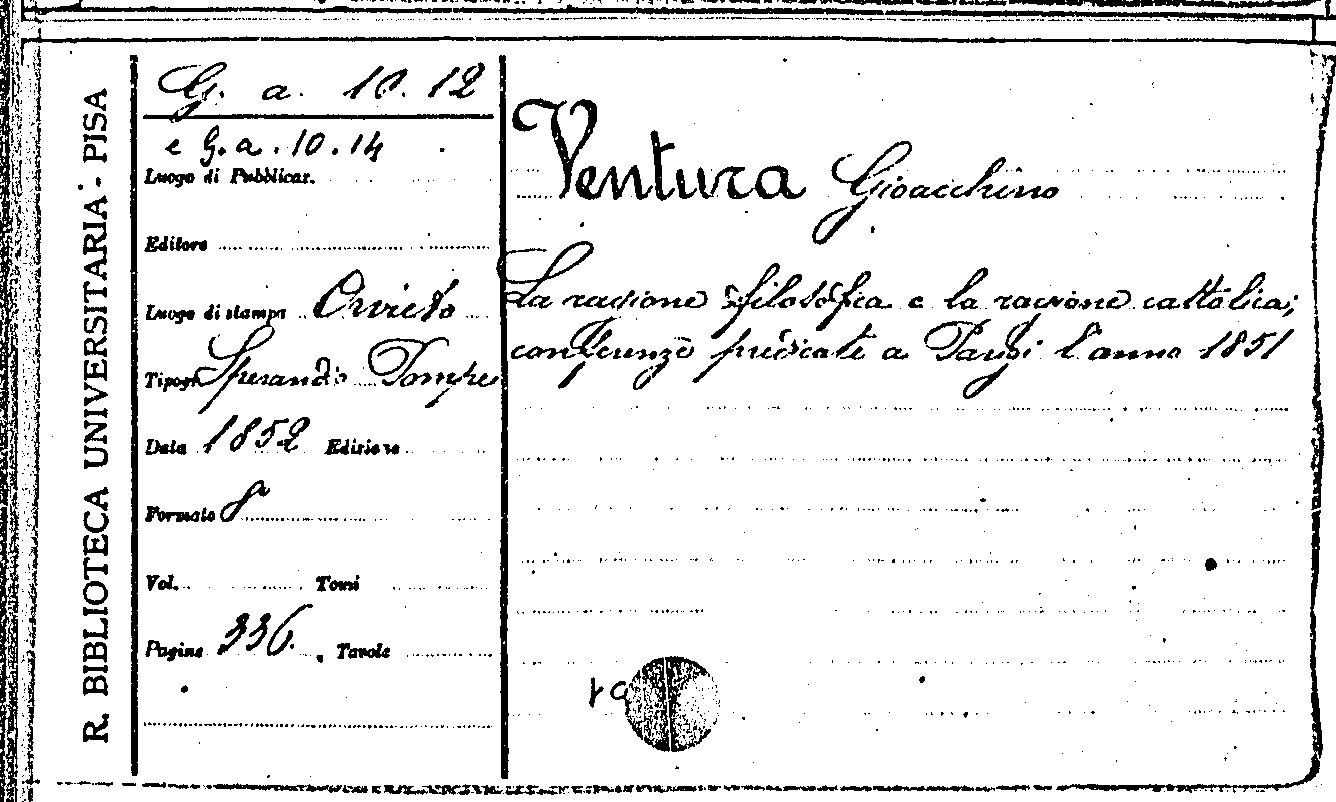 R. BIBLIOTECA UNIVERSITARIA - PISA
G. a. 10. 12
e G. a. 10. 14
Luogo di Pubblicaz.
Editore
Luogo di stampa Orvieto
Tipogr. Sperandio Pompei
Data 1852 Edizione
Formato 8°
Vol. Tomi
Pagine 336. Tavole
Ventura Gioacchino
La ragione filosofica e la ragione cattolica;
conferenze predicate a Parigi l'anno 1851